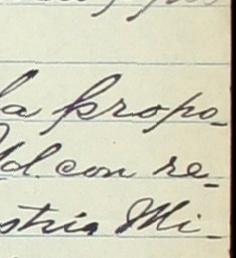 la propo-
Ud. con re-
stria Mi-